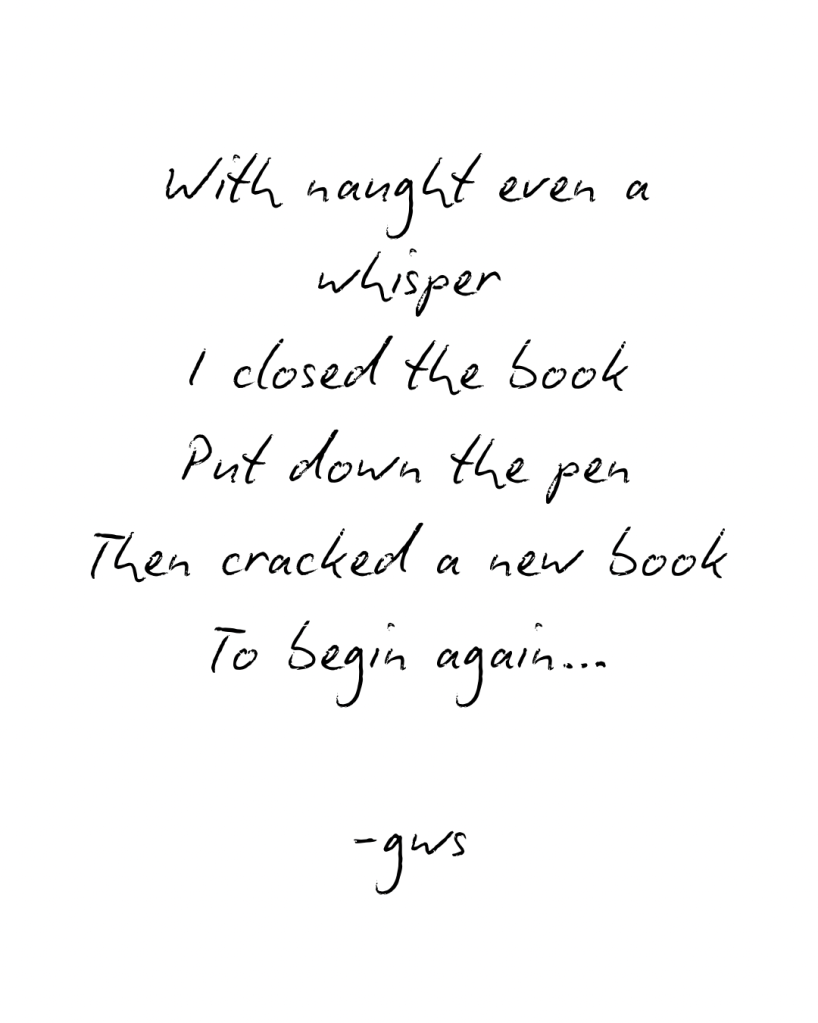 With naught even a
whisper
I closed the book
Put down the pen
Then cracked a new book
To begin again...
-gws